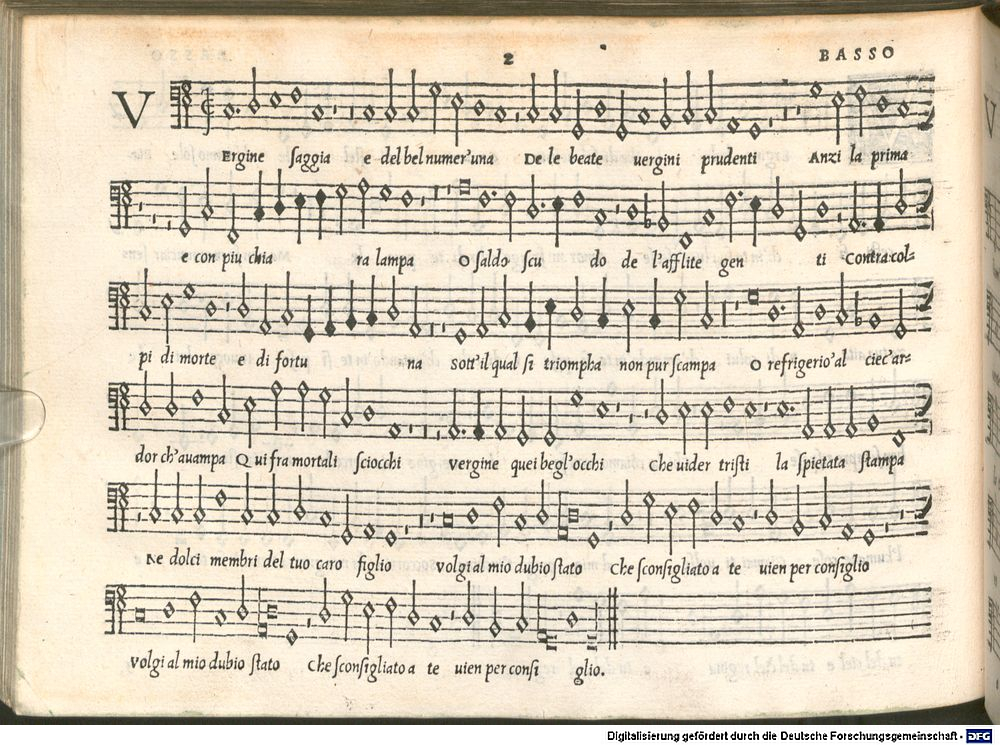 2 BASSO
V Ergine saggia e del bel numer'una De le beate uergini prudenti Anzi la prima
e con piu chia ra lampa O saldo scu do de l'afflite gen ti Contra col-
pi di morte e di fortu na sott'il qual si triompha non pur scampa O refrigerio'al ciec'ar-
dor ch'auampa Qui fra mortali sciocchi vergine quei begl'occhi Che uider tristi la spietata stampa
Ne dolci membri del tuo caro figlio volgi al mio dubio stato Che sconsigliato a te uien per consiglio
volgi al mio dubio stato Che sconsigliato a te uien per consi glio.
Digitalisierung gefördert durch die Deutsche Forschungsgemeinschaft - DFG